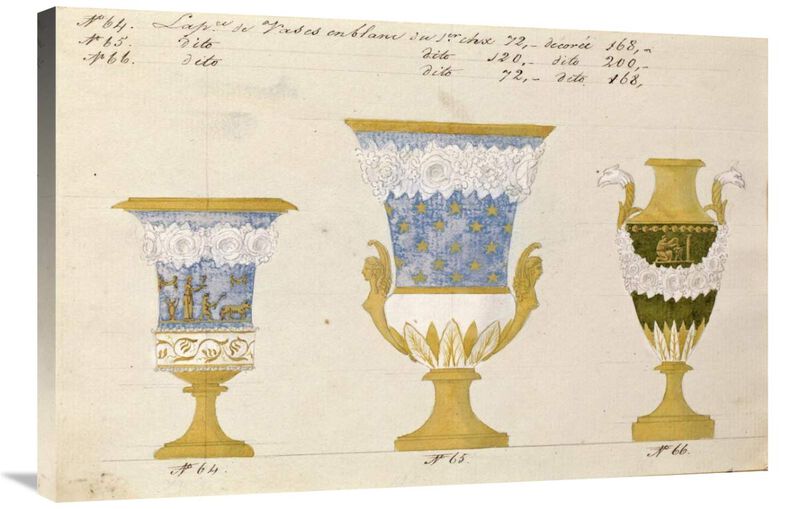 Nº 64. Lap.ce de Vases en blanc du 1er chx 72,- décorée 168,-
Nº 65. dito dito 120,- dito 200,-
Nº 66. dito dito 72,- dito 168,
Nº 64. Nº 65. Nº 66.